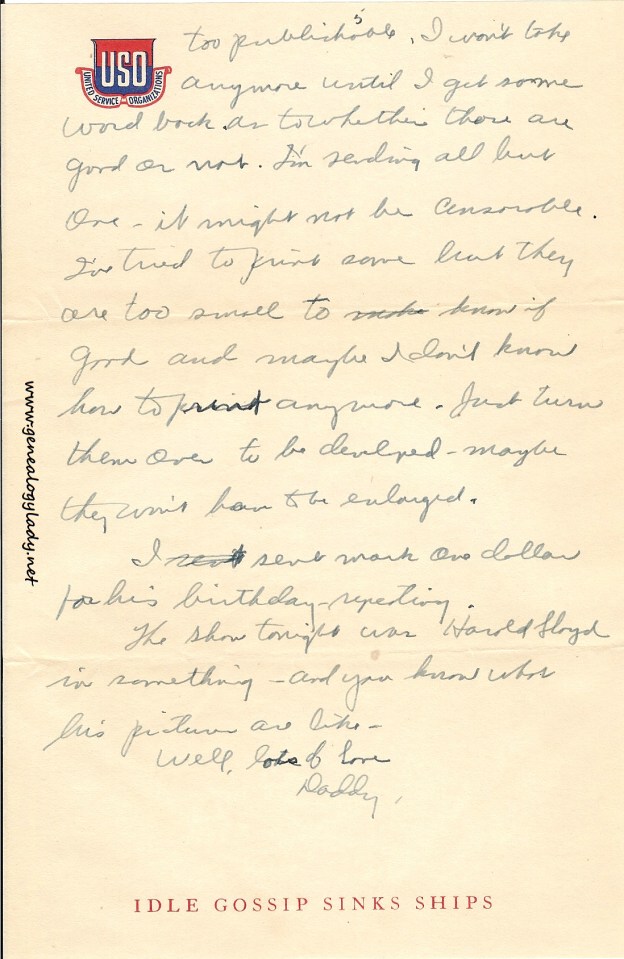 USO
UNITED SERVICE ORGANIZATIONS
5
too publishable. I won't take
anymore until I get some
word back as to whether these are
good or not. I'm sending all but
one - it might not be censorable.
I've tried to print some but they
are too small to make know if
good and maybe I don't know
how to print anymore. Just turn
them over to be develped - maybe
they won't have to be enlarged.
I sent sent Mark one dollar
for his birthday - repeating.
The show tonight was Harold Lloyd
in something - and you know what
his pictures are like -
Well, lots of love
Daddy,
IDLE GOSSIP SINKS SHIPS
www.genealogylady.net